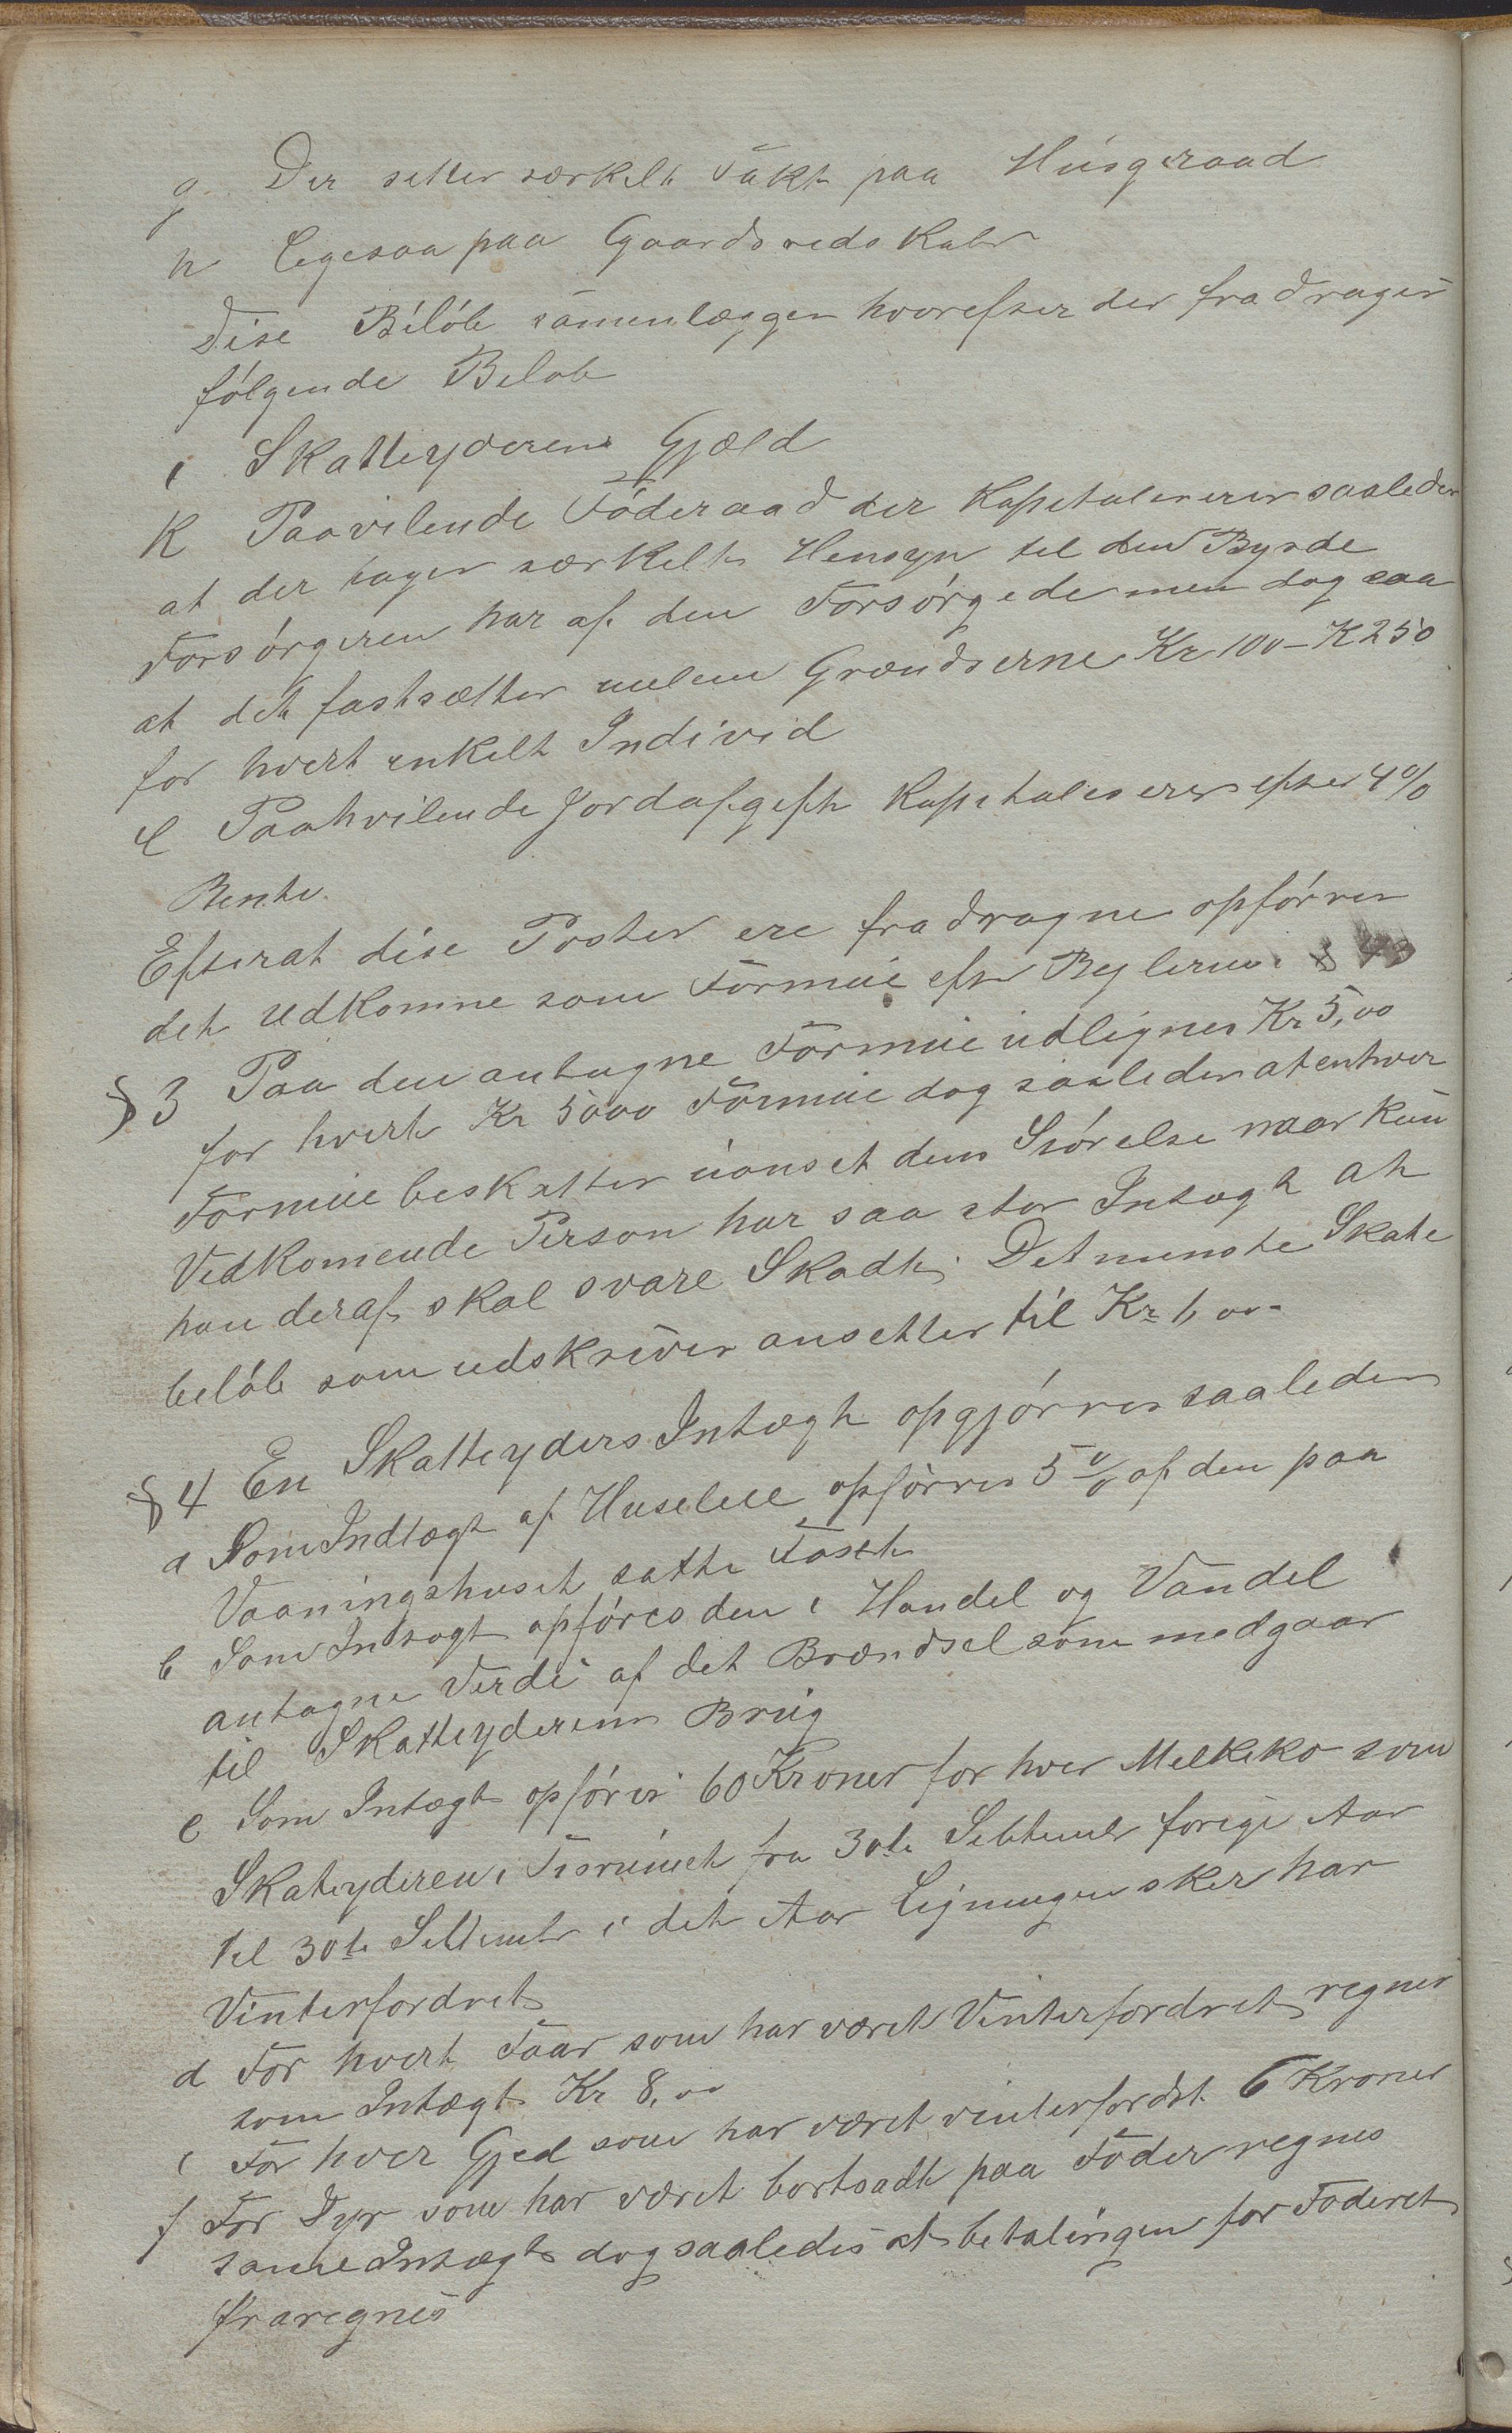 g. Der setter særkelt Takt paa Húsgeraad
h Ligesaa paa Gaardsredskaber
Disse Bélób sammenlægges hvorefter der fradrages
fólgende Belób
i Skatteyderens Gjæld
K Paavilende Fóderaad der Kapitaliseres saaledes
at der tages særkelt Hensyn til den Byrde
Forsórgeren har af den Forsórgede men dog saa
at det fastsættes mellem Grændserne Kr 100 – K 250
for hvert enkelt Individ
l Paahvilende Jordafgift Kapitaliseres efter 4 %
Rente.
Efterat disse Poster ere fradragne opfórres
det Udkomne som Formúe efter Reglerne i §
§ 3 Paa den antagne Formúe údlignes Kr 5,00
for hvert Kr 5000 Formúe dog saaledes at enhver
Formúe beskattes úanset dens Stórelse naar kún
Vedkomende Person har saa stor Intægt at
han deraf skal svare Skadt. Det minste Skate
belób som udskrives ansettes til Kr 1,00.
§ 4 En Skatteyders Intægt opgjórres saaledes
a Som Indtægt af Huseleie opfórres 5 % af den paa
Vaaningshuset satte Taxt
b Som Intægt opfóres den i Handel og Vandel
antagne Verdi af det Brændsel som medgaar
til Skatteyderens Brúg
c Som Intægt opfóres 60 Kroner for hver Melkeko som
Skateyderen i Tisrúmet fra 30te Sebtember forige Aar
til 30te Sebtember i det Aar Ligningen sker har
Vinterfordret
d For hvert Faar som har været Vinterfordret regnes
som Intægt Kr 8,00
e For hver Gjed som har været vinterfordret 6 Kroner
f For Dyr som har været bortsadt paa Foder regnes
samme Intægt dog saaledes at betalingen for Foderet
fraregnes